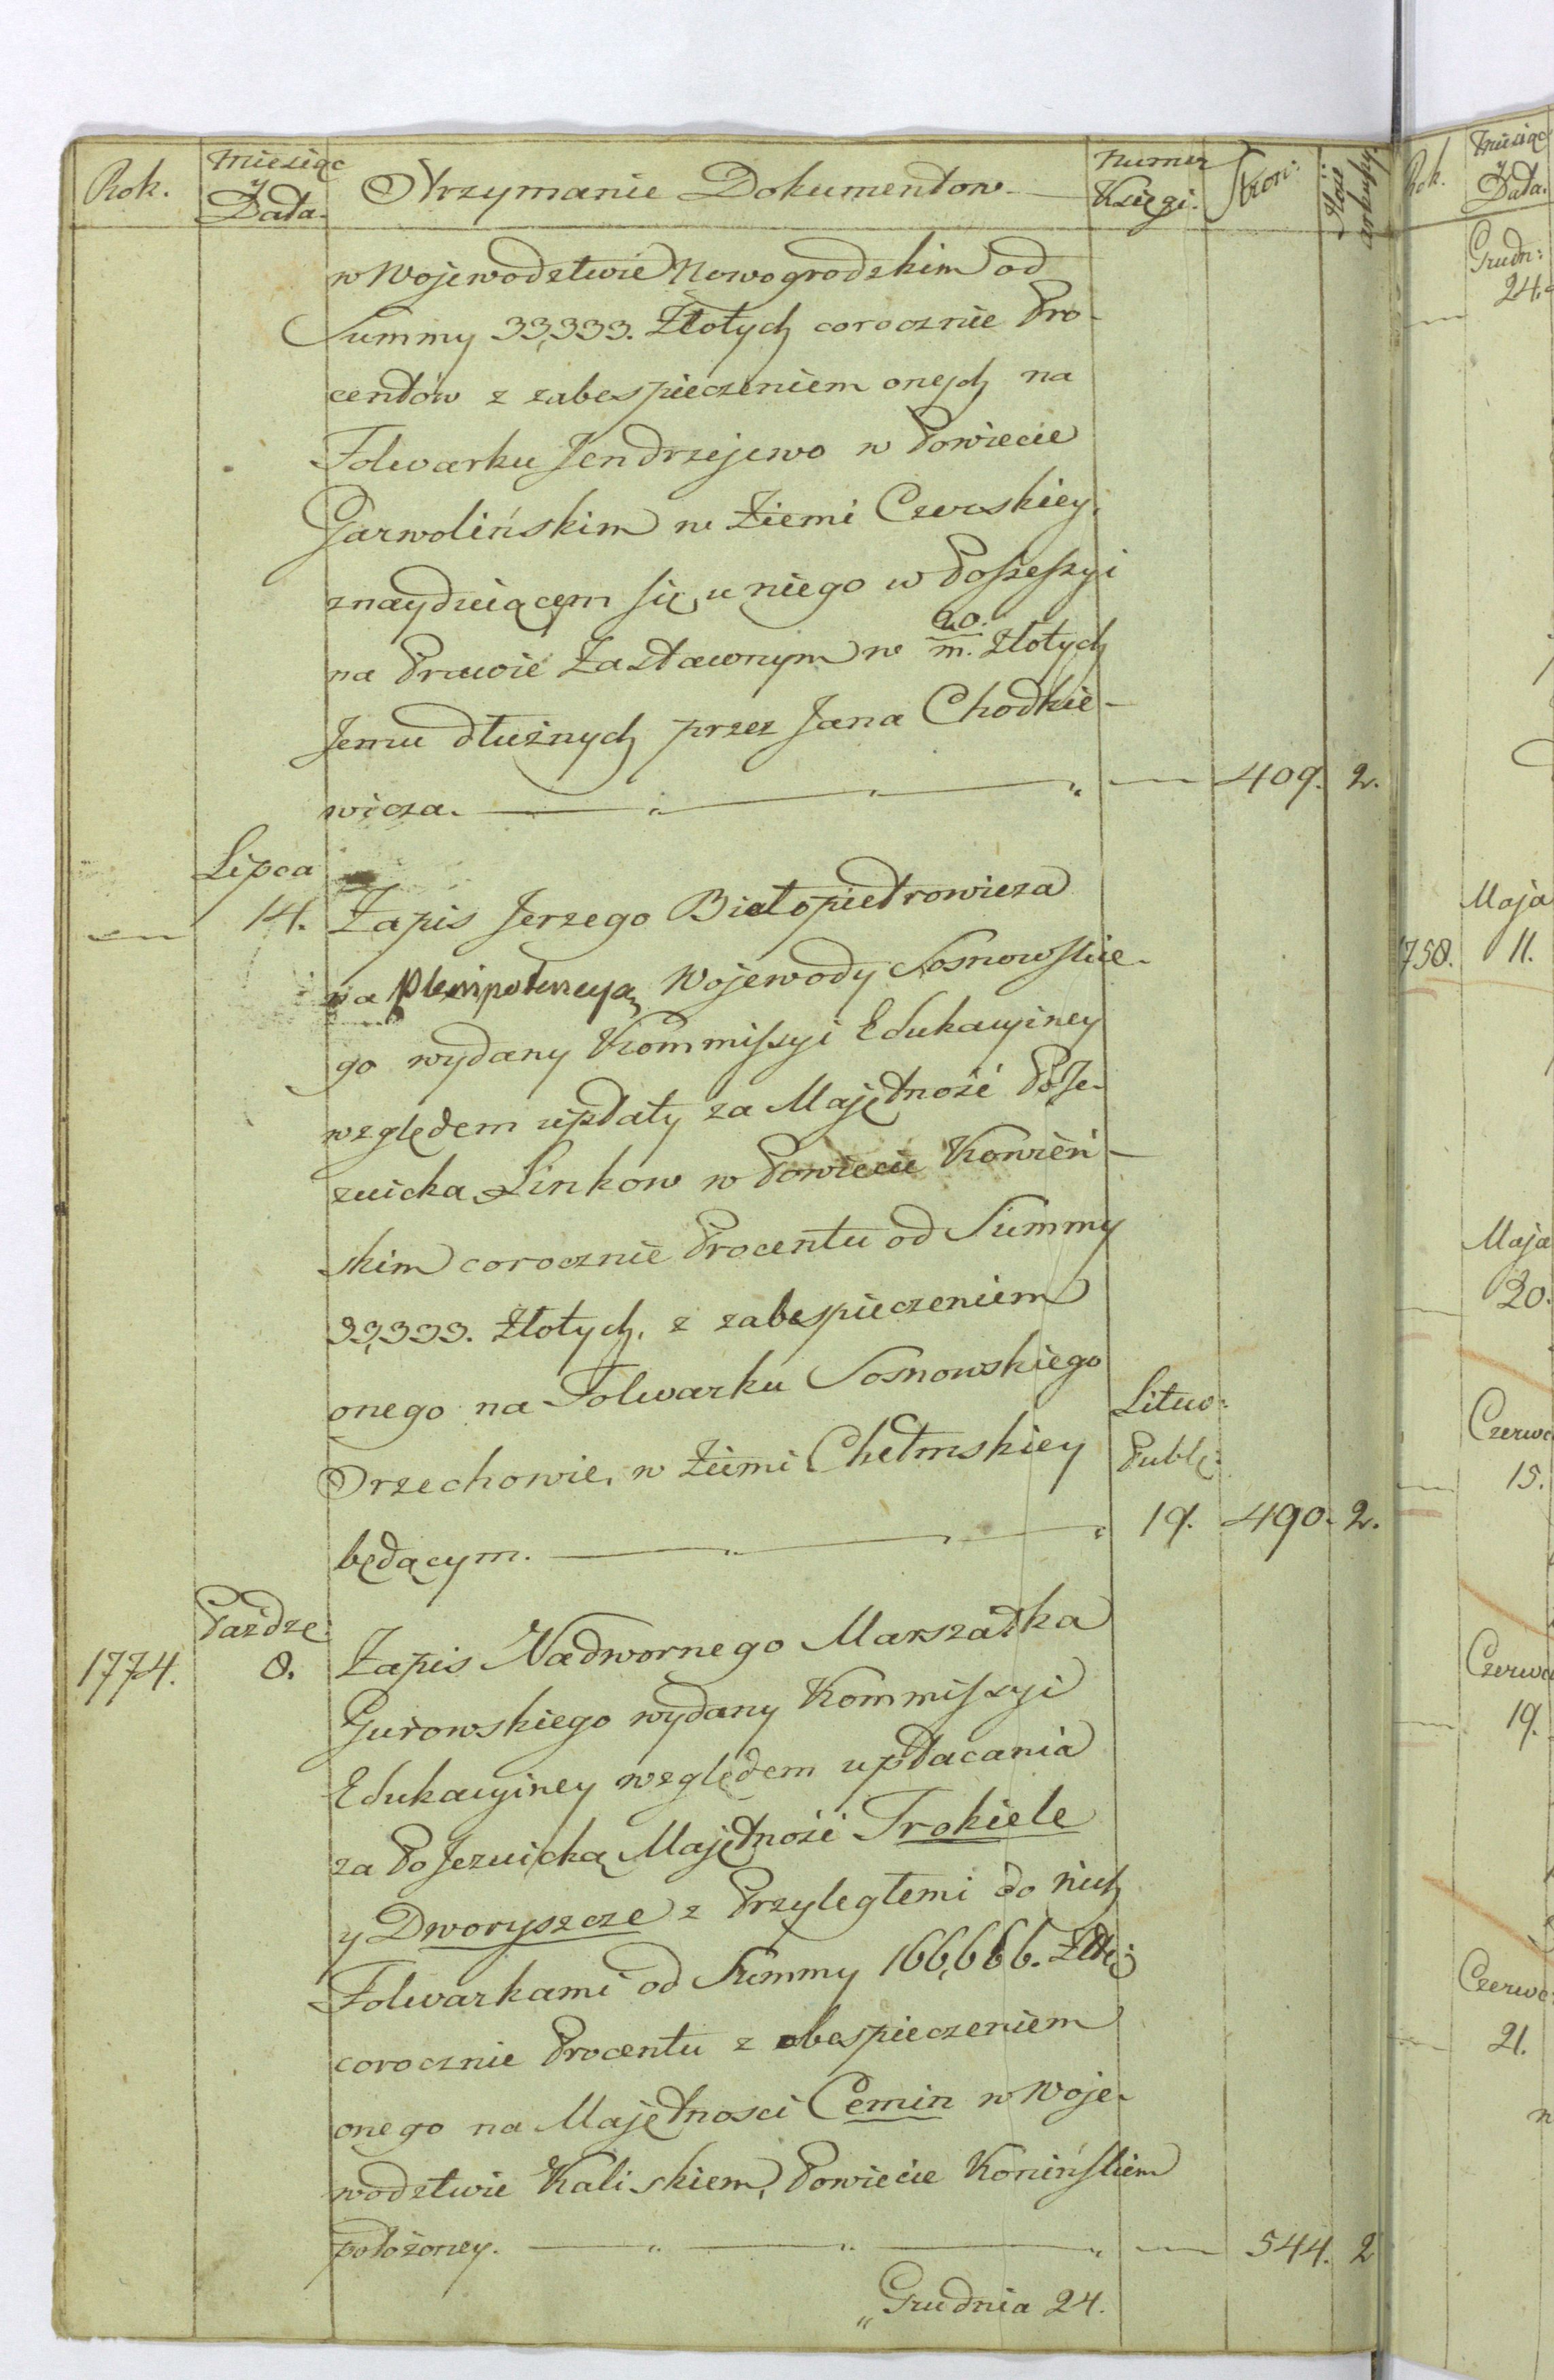 Rok. Miesiąc y Data. Otrzymanie Dokumentow Numer Księgi. Stron: Ilość arkuszy.
w Wojewodztwie Nowogrodzkim od
Summy 33,333. Złotych corocznie Pro-
centów z zabespieczeniem onych na
Folwarku Jendrzejewo w Powiecie
Garwolińskim w Ziemi Czerskiey,
znayduiącym się u niego w Possessyi
na Prawie Zastawnym w 20./m. Złotych
Jemu dłużnych przez Jana Chodkie-
wicza. — — — — 409. 2.
Lipca
— 14. Zapis Jerzego Białopiotrowicza
za Plenipotencyą Wojewody Sosnowskie-
go wydany Kommissyi Edukacyiney
względem upłaty za Majętność PoJe-
zuicka Linkow w Powiecie Kowień-
skim corocznie Procentu od Summy
33,333. Złotych, z zabespieczeniem
onego na Folwarku Sosnowskiego
Orzechowie, w Ziemi Chełmskiey
Litew:
Publ:
będącym. — — — 19. 490. 2.
Paźdze:
1774. 8. Zapis Nadwornego Marszałka
Gurowskiego wydany Kommissyi
Edukacyiney względem upłacania
za PoJezuicką Majętność Trokiele
y Dworyszcze z Przyległemi do nich
Folwarkami od Summy 166,666. Złł:
corocznie Procentu z obespieczeniem
onego na Majętnosci Cemin w Woje-
wodztwie Kaliskiem, Powiecie Konińskiem
położoney. — — — — 544. 2
„Grudnia 24.
Rok. Miesiąc y Data.
Grudn:
24.
Maja
1758. 11.
Maja
20.
Czerwc
15.
Czerwc
19.
Czerwc:
21.